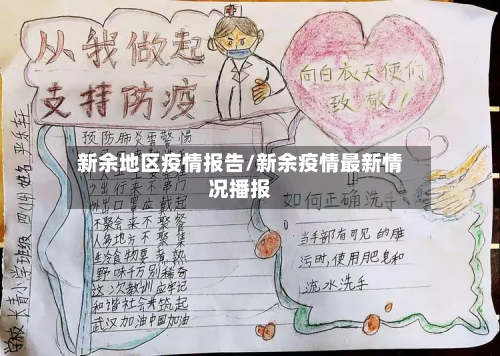 从我做起
支持防疫
向白衣天使们
致敬!
预防肺炎要警惕
新余地区疫情报告/新余疫情最新情
况播报
少出行来不串门
外出口罩应戴起
不聚会来不聚餐
人多地方不聚集
生冷食物要煮熟
野味千万别稀奇
这次教训应牢记
和谐社会来筑起
武汉加油中国加油
如何正确洗手
当手部有可见的雎
污时,使用肥皂和
流水洗手
学校 长青小学 班级 四(1) 姓名